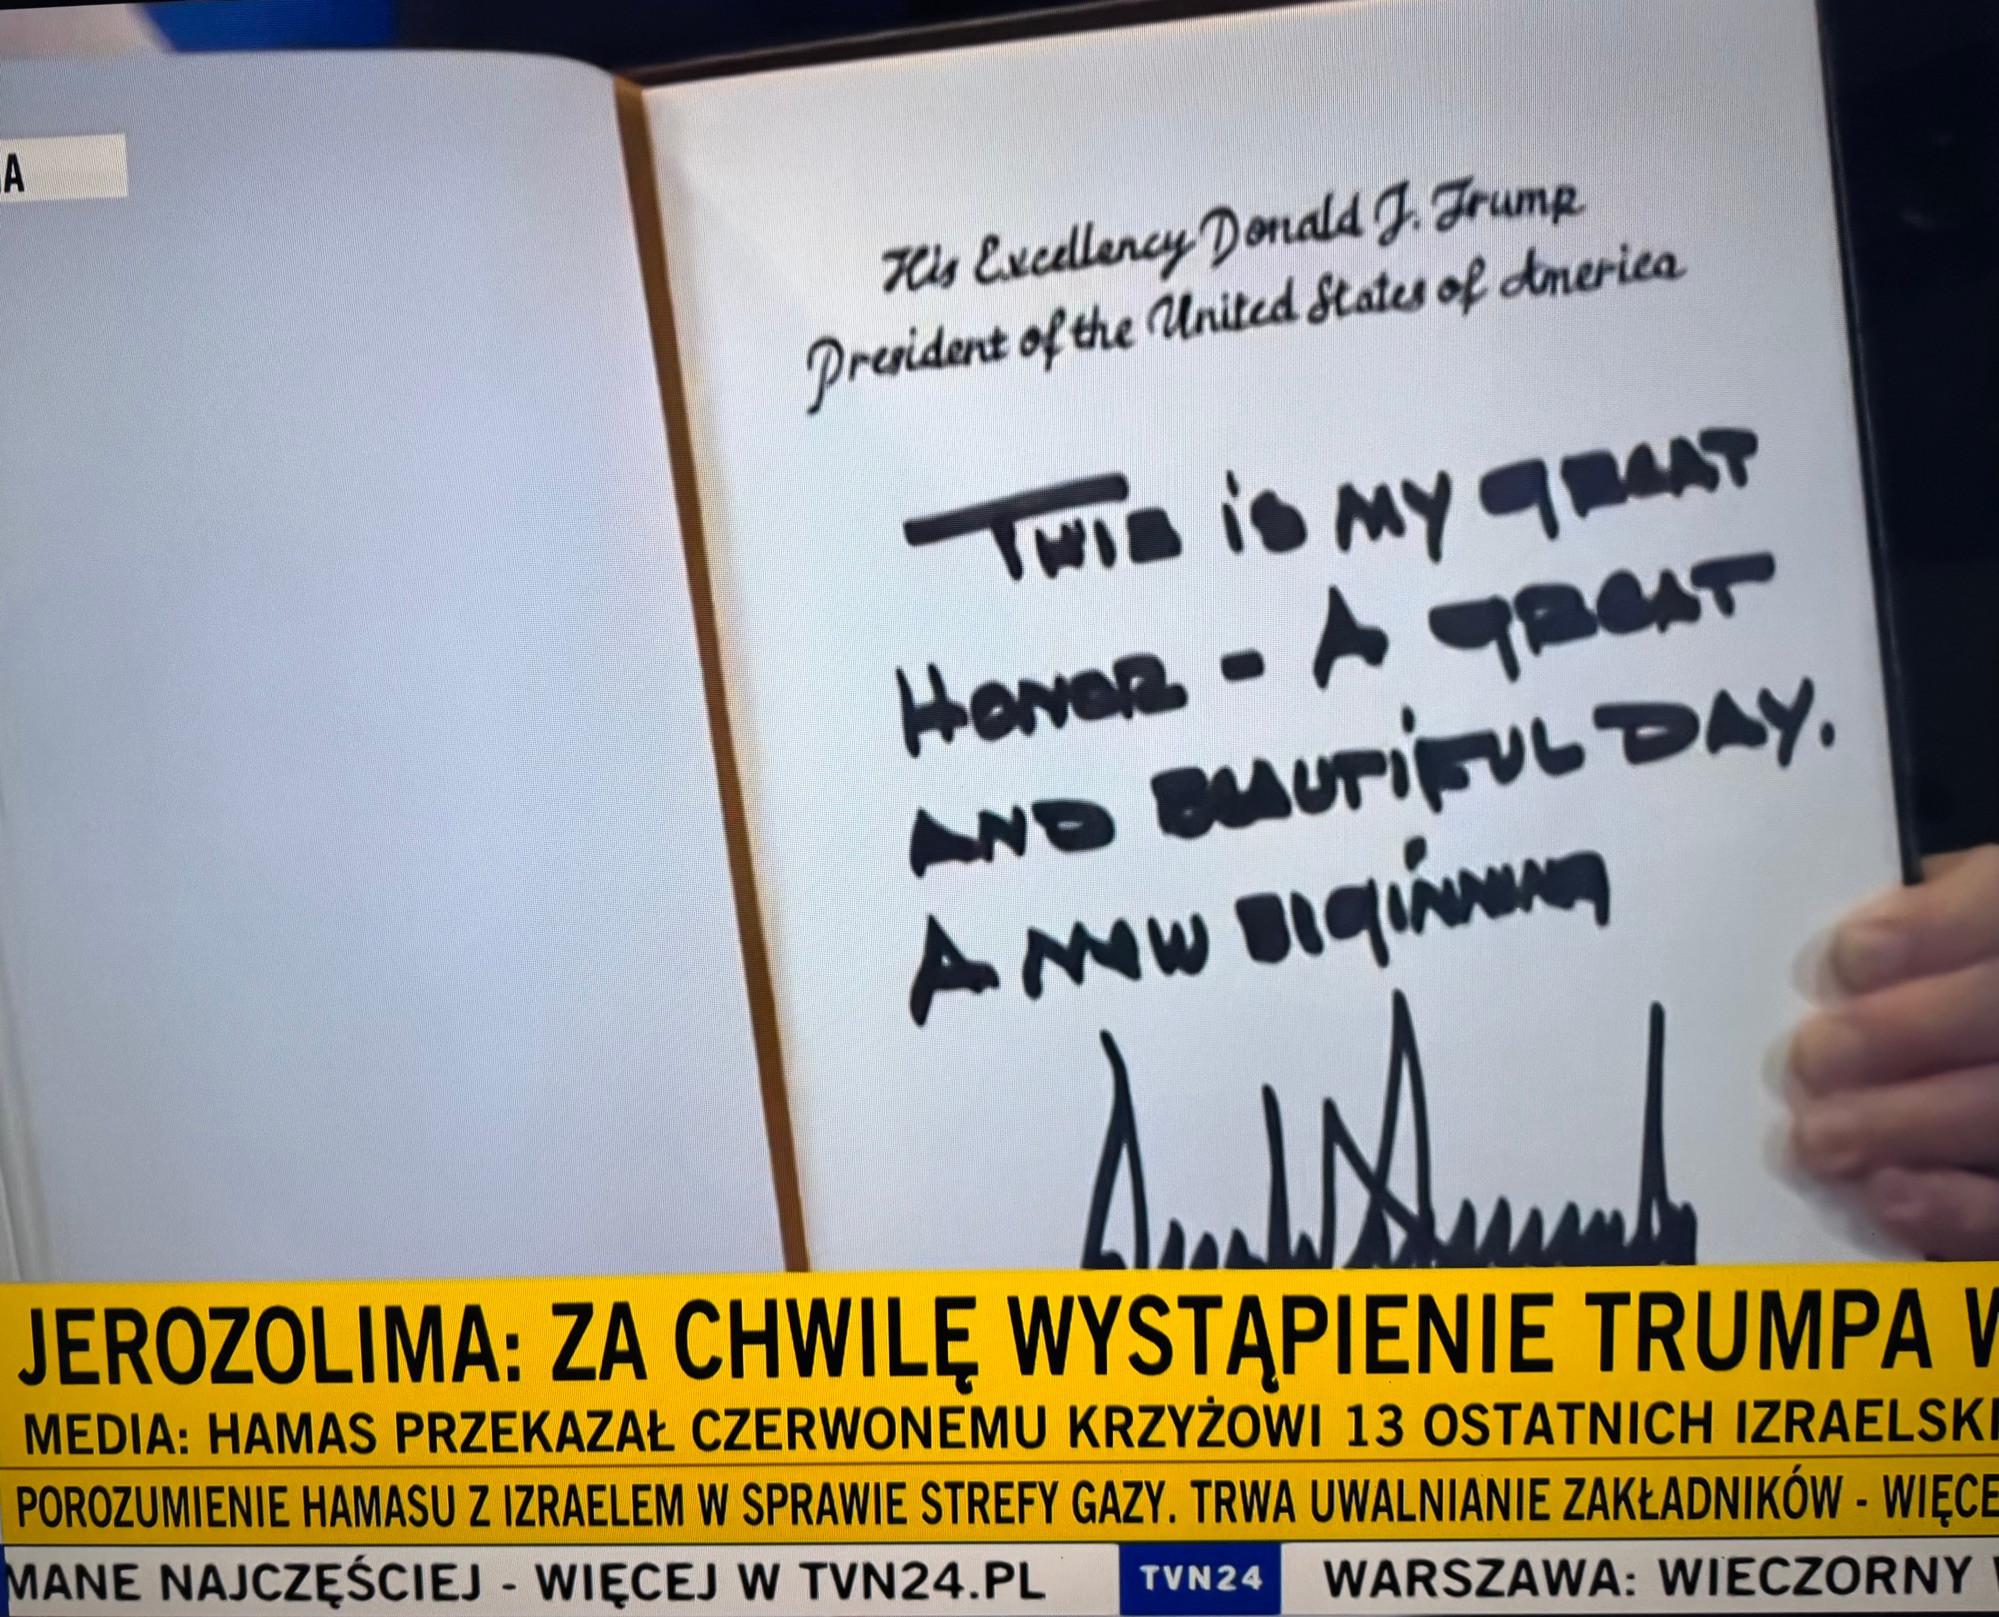 A
His Excellency Donald J. Trump
President of the United States of America
THIS is MY GREAT
HONOR - A GREAT
AND BEAUTiFUL DAY.
A NEW BEGiNNING
JEROZOLIMA: ZA CHWILĘ WYSTĄPIENIE TRUMPA W
MEDIA: HAMAS PRZEKAZAŁ CZERWONEMU KRZYŻOWI 13 OSTATNICH IZRAELSKI
POROZUMIENIE HAMASU Z IZRAELEM W SPRAWIE STREFY GAZY. TRWA UWALNIANIE ZAKŁADNIKÓW - WIĘCE
MANE NAJCZĘŚCIEJ - WIĘCEJ W TVN24.PL TVN24 WARSZAWA: WIECZORNY